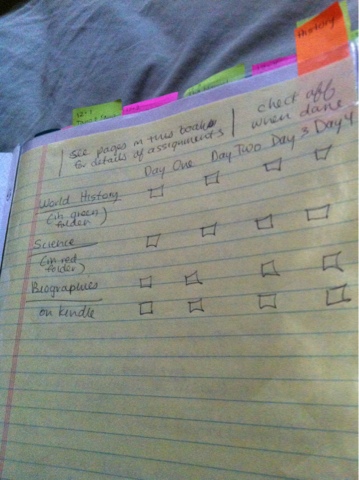 History
see pages in this book
for details of assignments
check off
when done
Day One Day Two Day 3 Day 4
World History
(in green
folder)
Science
(in red
folder)
Biographies
on kindle